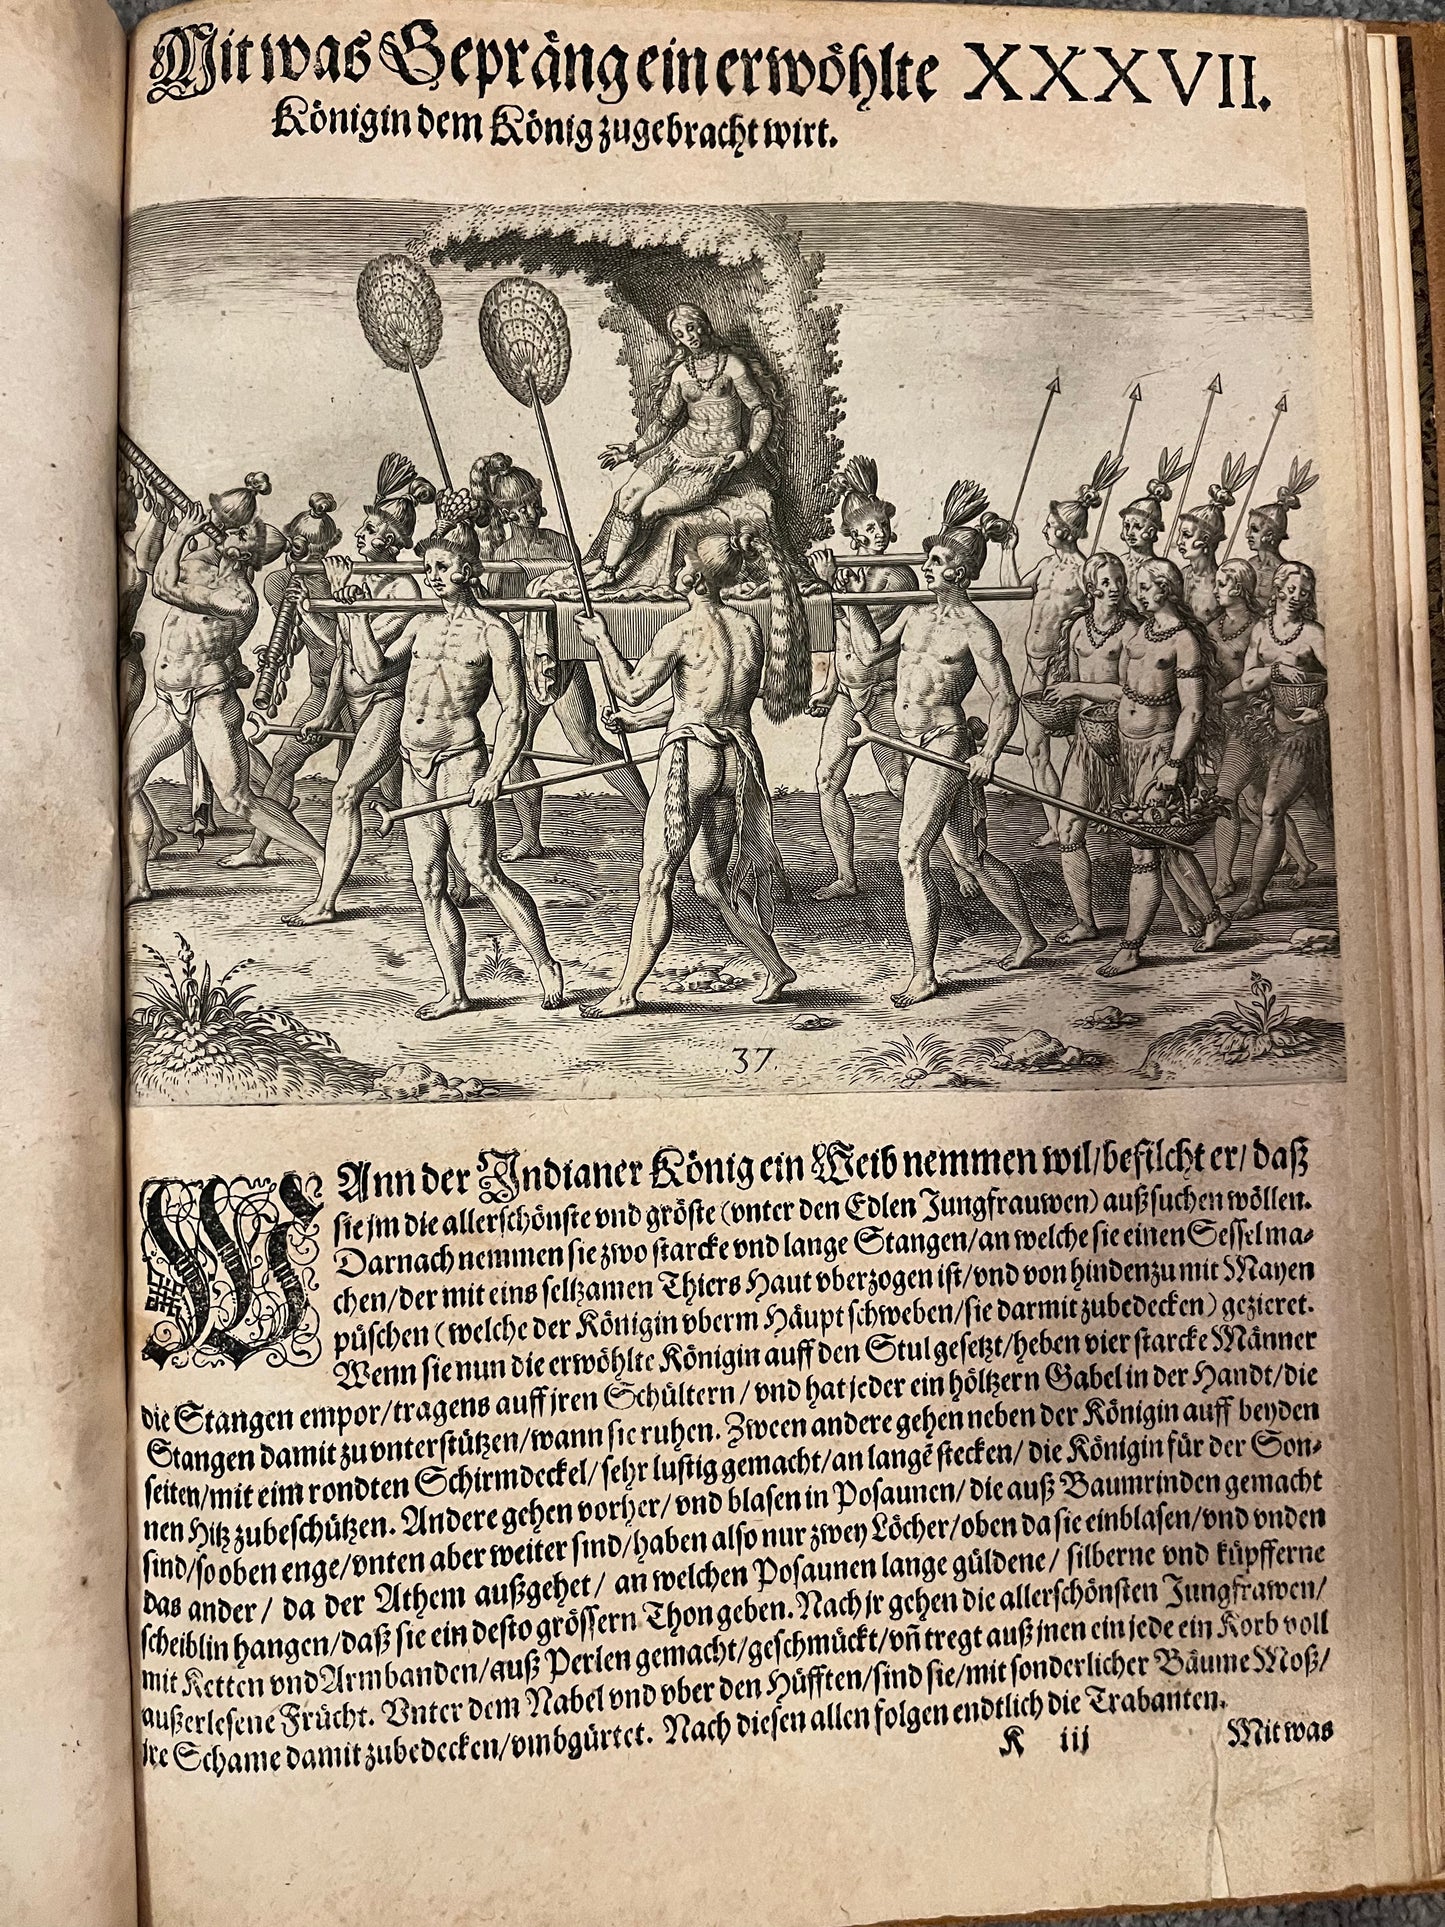 Mit was Gepräng ein erwöhlte XXXVII.
Königin dem König zugebracht wirt.
37.
WAnn der Indianer König ein Weib nemmen wil/ befilcht er/ daß
sie jm die allerschönste vnd gröste (vnter den Edlen Jungfrauwen) außsuchen wöllen.
Darnach nemmen sie zwo starcke vnd lange Stangen/ an welche sie einen Sessel ma-
chen/ der mit eins seltzamen Thiers Haut vberzogen ist/ vnd von hinden zu mit Mayen
püschen (welche der Königin vberm Häupt schweben/ sie darmit zubedecken) gezieret.
Wenn sie nun die erwöhlte Königin auff den Stul gesetzt/ heben vier starcke Männer
die Stangen empor/ tragens auff jren Schültern/ vnd hat jeder ein höltzern Gabel in der Handt/ die
Stangen damit zu vnterstützen/ wann sie ruhen. Zween andere gehen neben der Königin auff beyden
seiten/ mit eim rondten Schirmdeckel/ sehr lustig gemacht/ an langē stecken/ die Königin für der Son-
nen Hitz zubeschützen. Andere gehen vorher/ vnd blasen in Posaunen/ die auß Baumrinden gemacht
sind/ so oben enge/ vnten aber weiter sind/ haben also nur zwey Löcher/ oben da sie einblasen/ vnd vnden
das ander/ da der Athem außgehet/ an welchen Posaunen lange güldene/ silberne vnd küpfferne
scheiblin hangen/ daß sie ein desto grössern Thon geben. Nach jr gehen die allerschönsten Jungfrawen/
mit Ketten vnd Armbanden/ auß Perlen gemacht/ geschmückt/ vñ tregt auß jnen ein jede ein Korb voll
außerlesene Frücht. Vnter dem Nabel vnd vber den Hüfften/ sind sie/ mit sonderlicher Bäume Moß/
jre Schame damit zubedecken/ vmbgürtet. Nach diesen allen folgen endtlich die Trabanten.
K iij Mit was